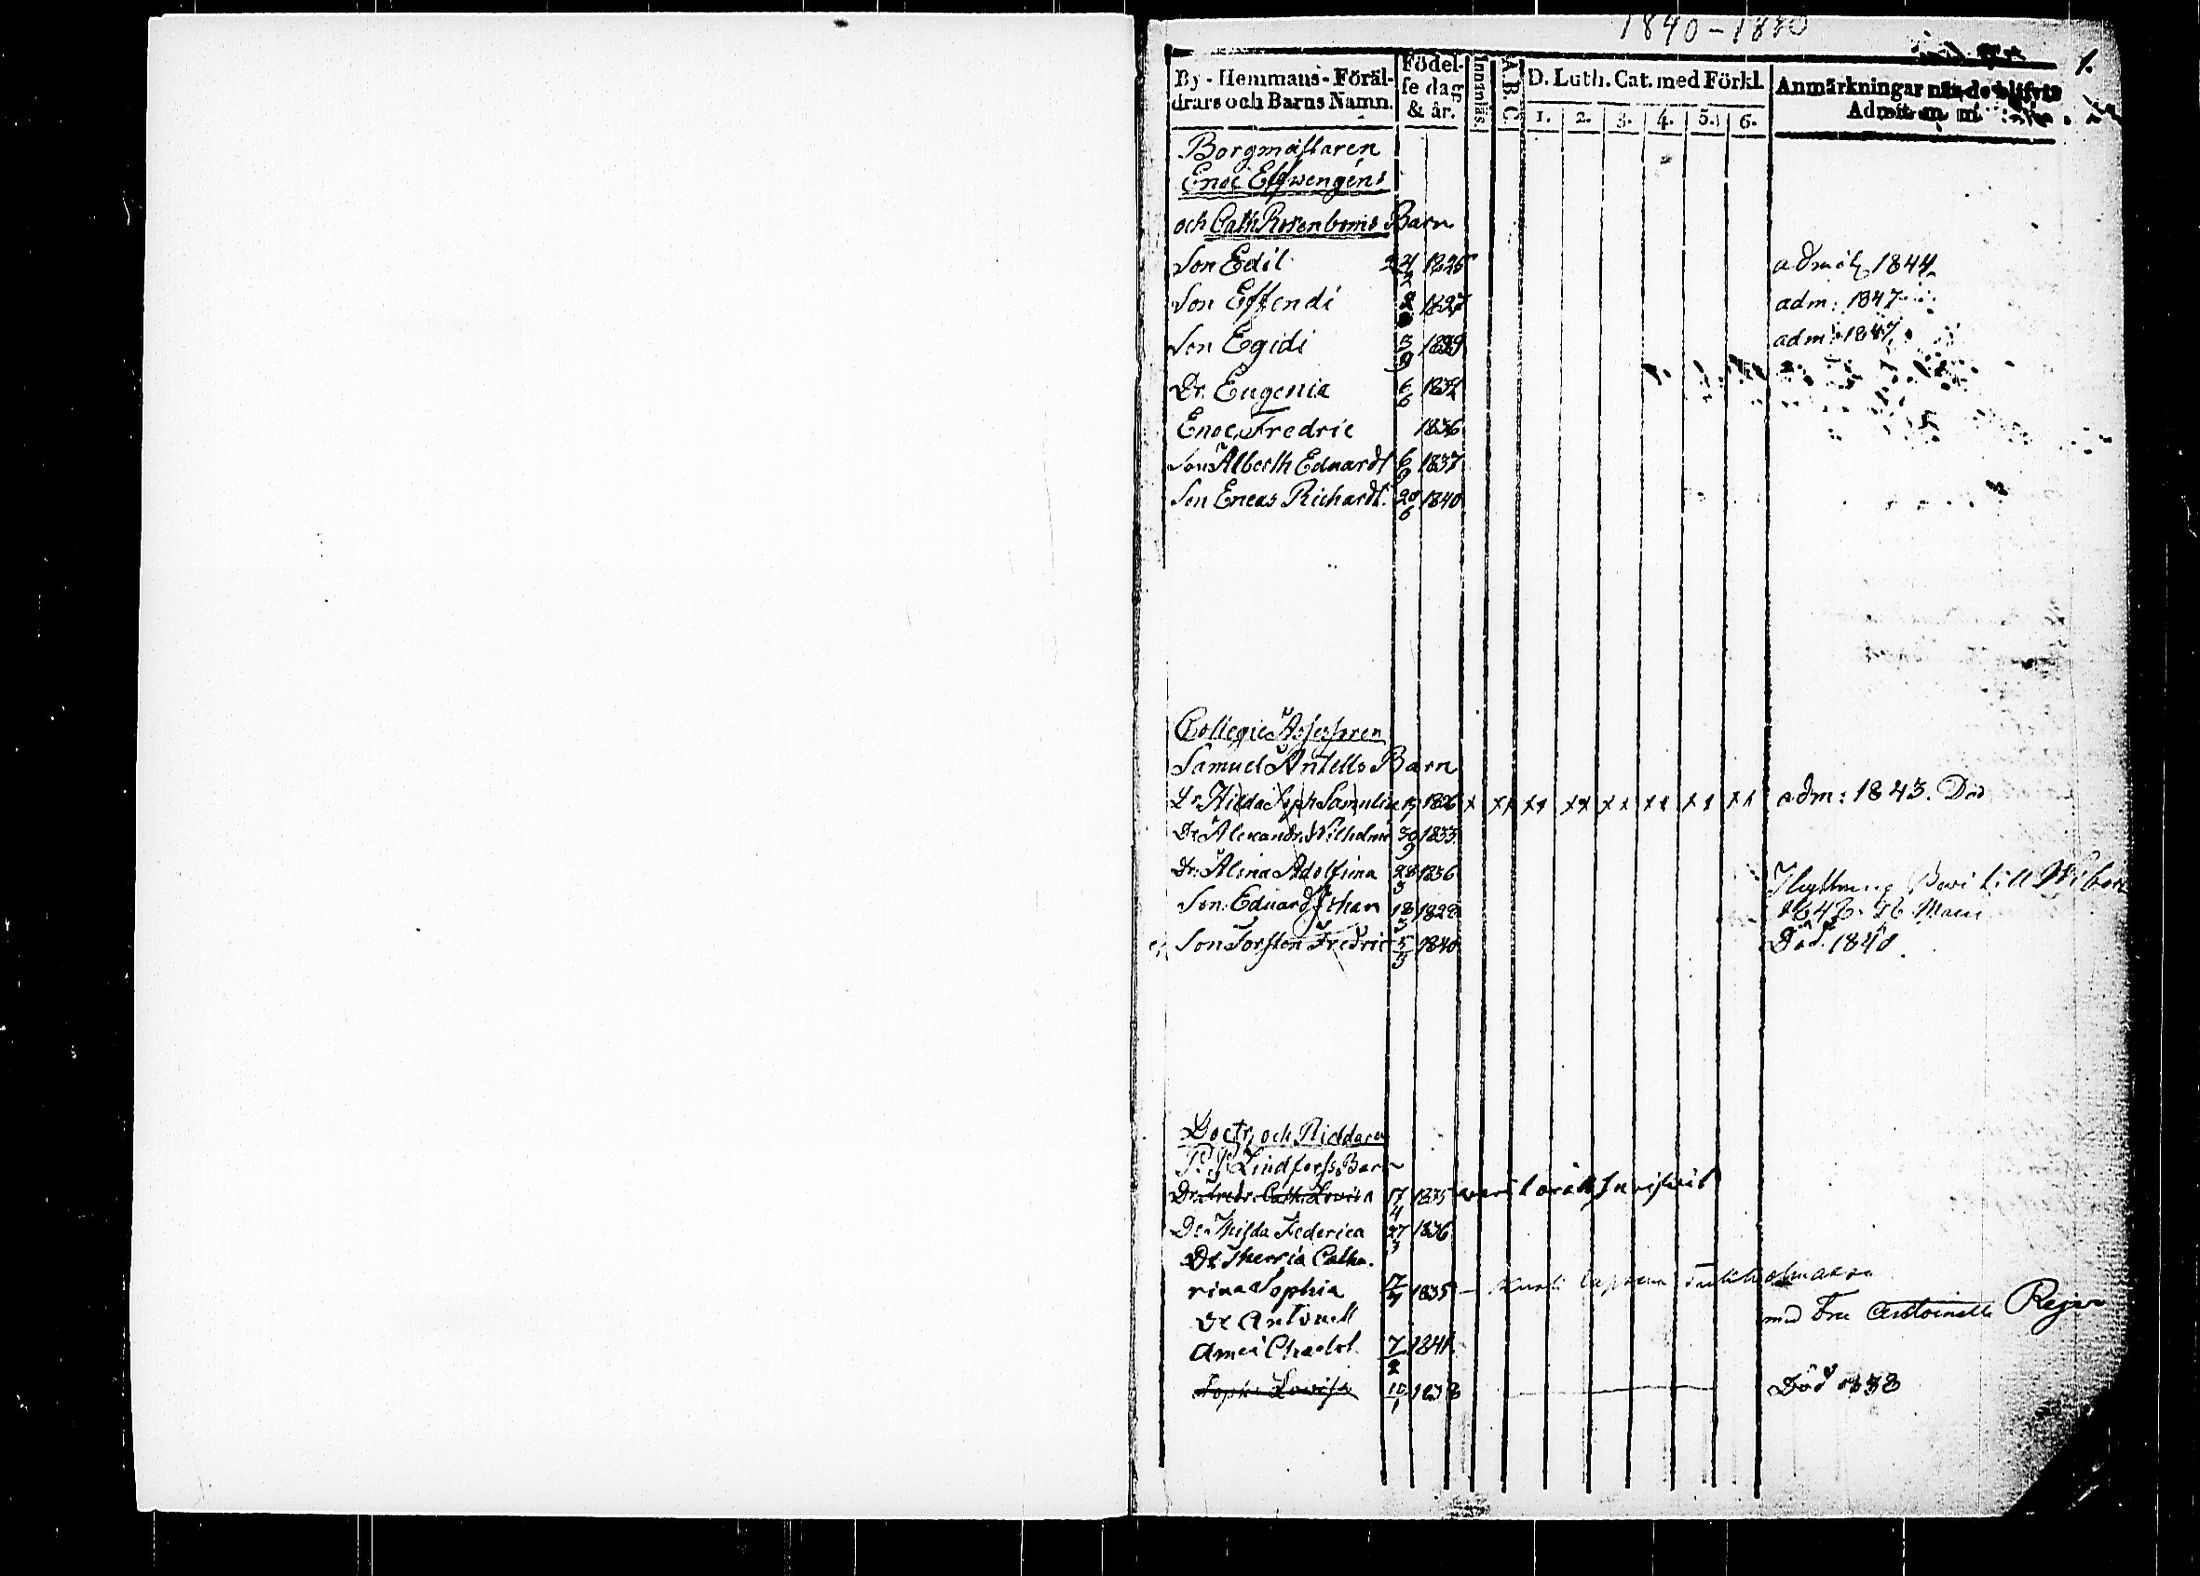 1840-1850
1.
By-Hemmans-Föräl-
drars och Barns Namn.
Födel-
se dag
& år.
Innanläs.
A.B.C.
D. Luth. Cat. med Förkl.
1. 2. 3. 4. 5. 6.
Anmärkningar när de blifvit
Admit. m. m.
Borgmästaren
Enoc Elfwengens
och Cath Rosenboms Barn
Son Edil 1825 admit 1844
Son Effendi 1827 adm: 1847
Son Egidi 5/9 1829 adm: 1847
Dr. Eugenia 6/6 1832
Enoc Fredric 1836
Son Alberth Eduardt 6/9 1837
Son Eneas Richardt. 20/6 1840
Collegie Assessoren
Samuel Antells Barn
Dr Hilda Soph Samulina 19 1826 x xx xx xx xx xx xx xx adm: 1843. Död
Dr Alexandr. Wilhelmin 30/9 1833
Dr. Alina Adolfina 28/3 1836
Son Eduard Johan 18/3 1828
Son Torsten Fredric 5/5 1840 Död 1840
Doct: och Riddaren
Lindforss Barn
Dr. Fredr. Cath. Lovisa 17/4 1835
Dr. Thilda Federica 27/3 1836
Dr Cathа-
rina Sophia 17/4 1835
Dr Antonett
7/2 1841
med Fru Antoinette
Soph: Lovisa 10/1 1838 Död 1838